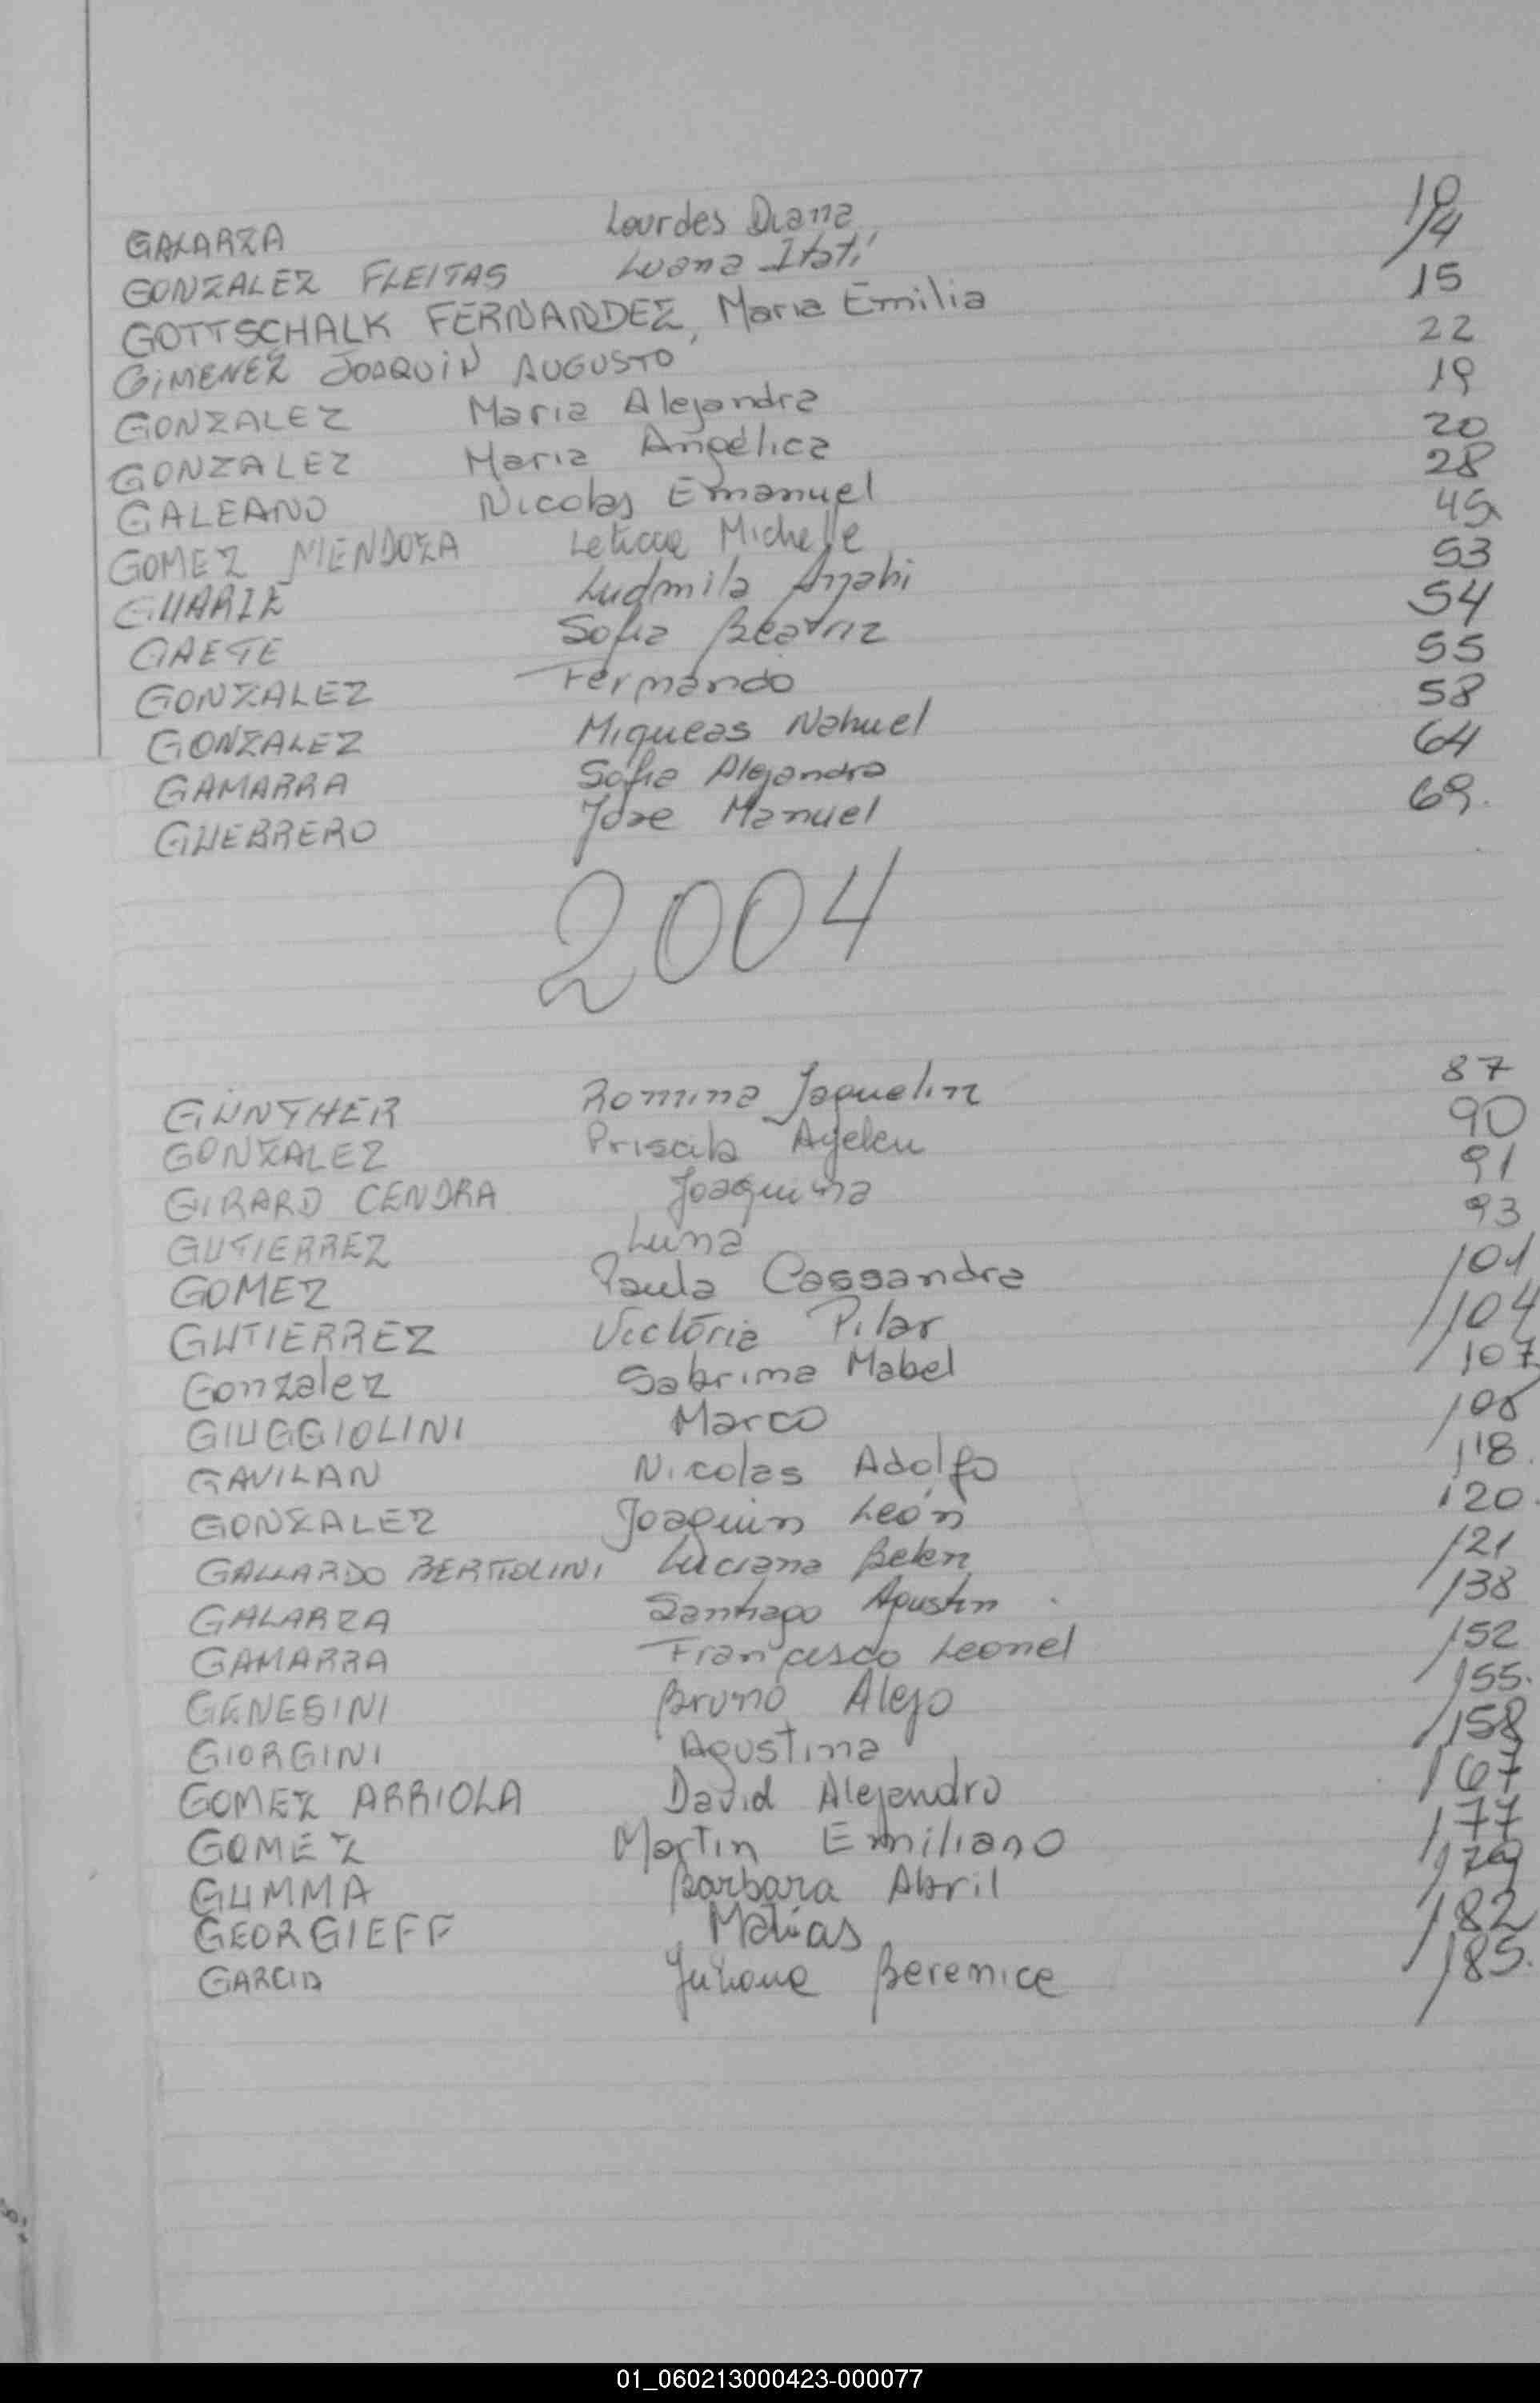 GALARZA Lourdes Diana 10
GONZALEZ FLEITAS Luana Itatí 14
GOTTSCHALK FERNANDEZ, Maria Emilia 15
GIMENEZ JOAQUIN AUGUSTO 22
GONZALEZ Maria Alejandra 19
GONZALEZ Maria Angélica 20
GALEANO Nicolas Emanuel 28
GOMEZ MENDOZA Michelle
Ludmila Anahi 53
GAETE Sofia Beatriz 54
GONZALEZ Fernando 55
GONZALEZ Miqueas Nahuel 58
GAMARRA Sofia Alejandra 64
GUERRERO Jose Manuel 69.
2004
GÜNTHER Romina Jaquelin 87
GONZALEZ Priscila Ayelen 90
GIRARD CENDRA Joaquina 91
GUTIERREZ Luna 93
GOMEZ Paula Cassandra 101
GUTIERREZ Victória Pilar 104
Gonzalez Sabrina Mabel 107
GIUGGIOLINI Marco 108
GAVILAN Nicolas Adolfo 118.
GONZALEZ Joaquin León 120.
GALLARDO BERTOLINI Luciana Belen 121
GALARZA Santiago Agustin 138
GAMARRA Francisco Leonel 152
GENESINI Bruno Alejo 155.
GIORGINI Agustina 158
GOMEZ ARRIOLA David Alejandro 167
GOMEZ Martin Emiliano 177
GUMMA Barbara Abril 179
GEORGIEFF Matías 182
GARCIA Juliana Berenice 185.
01_060213000423-000077